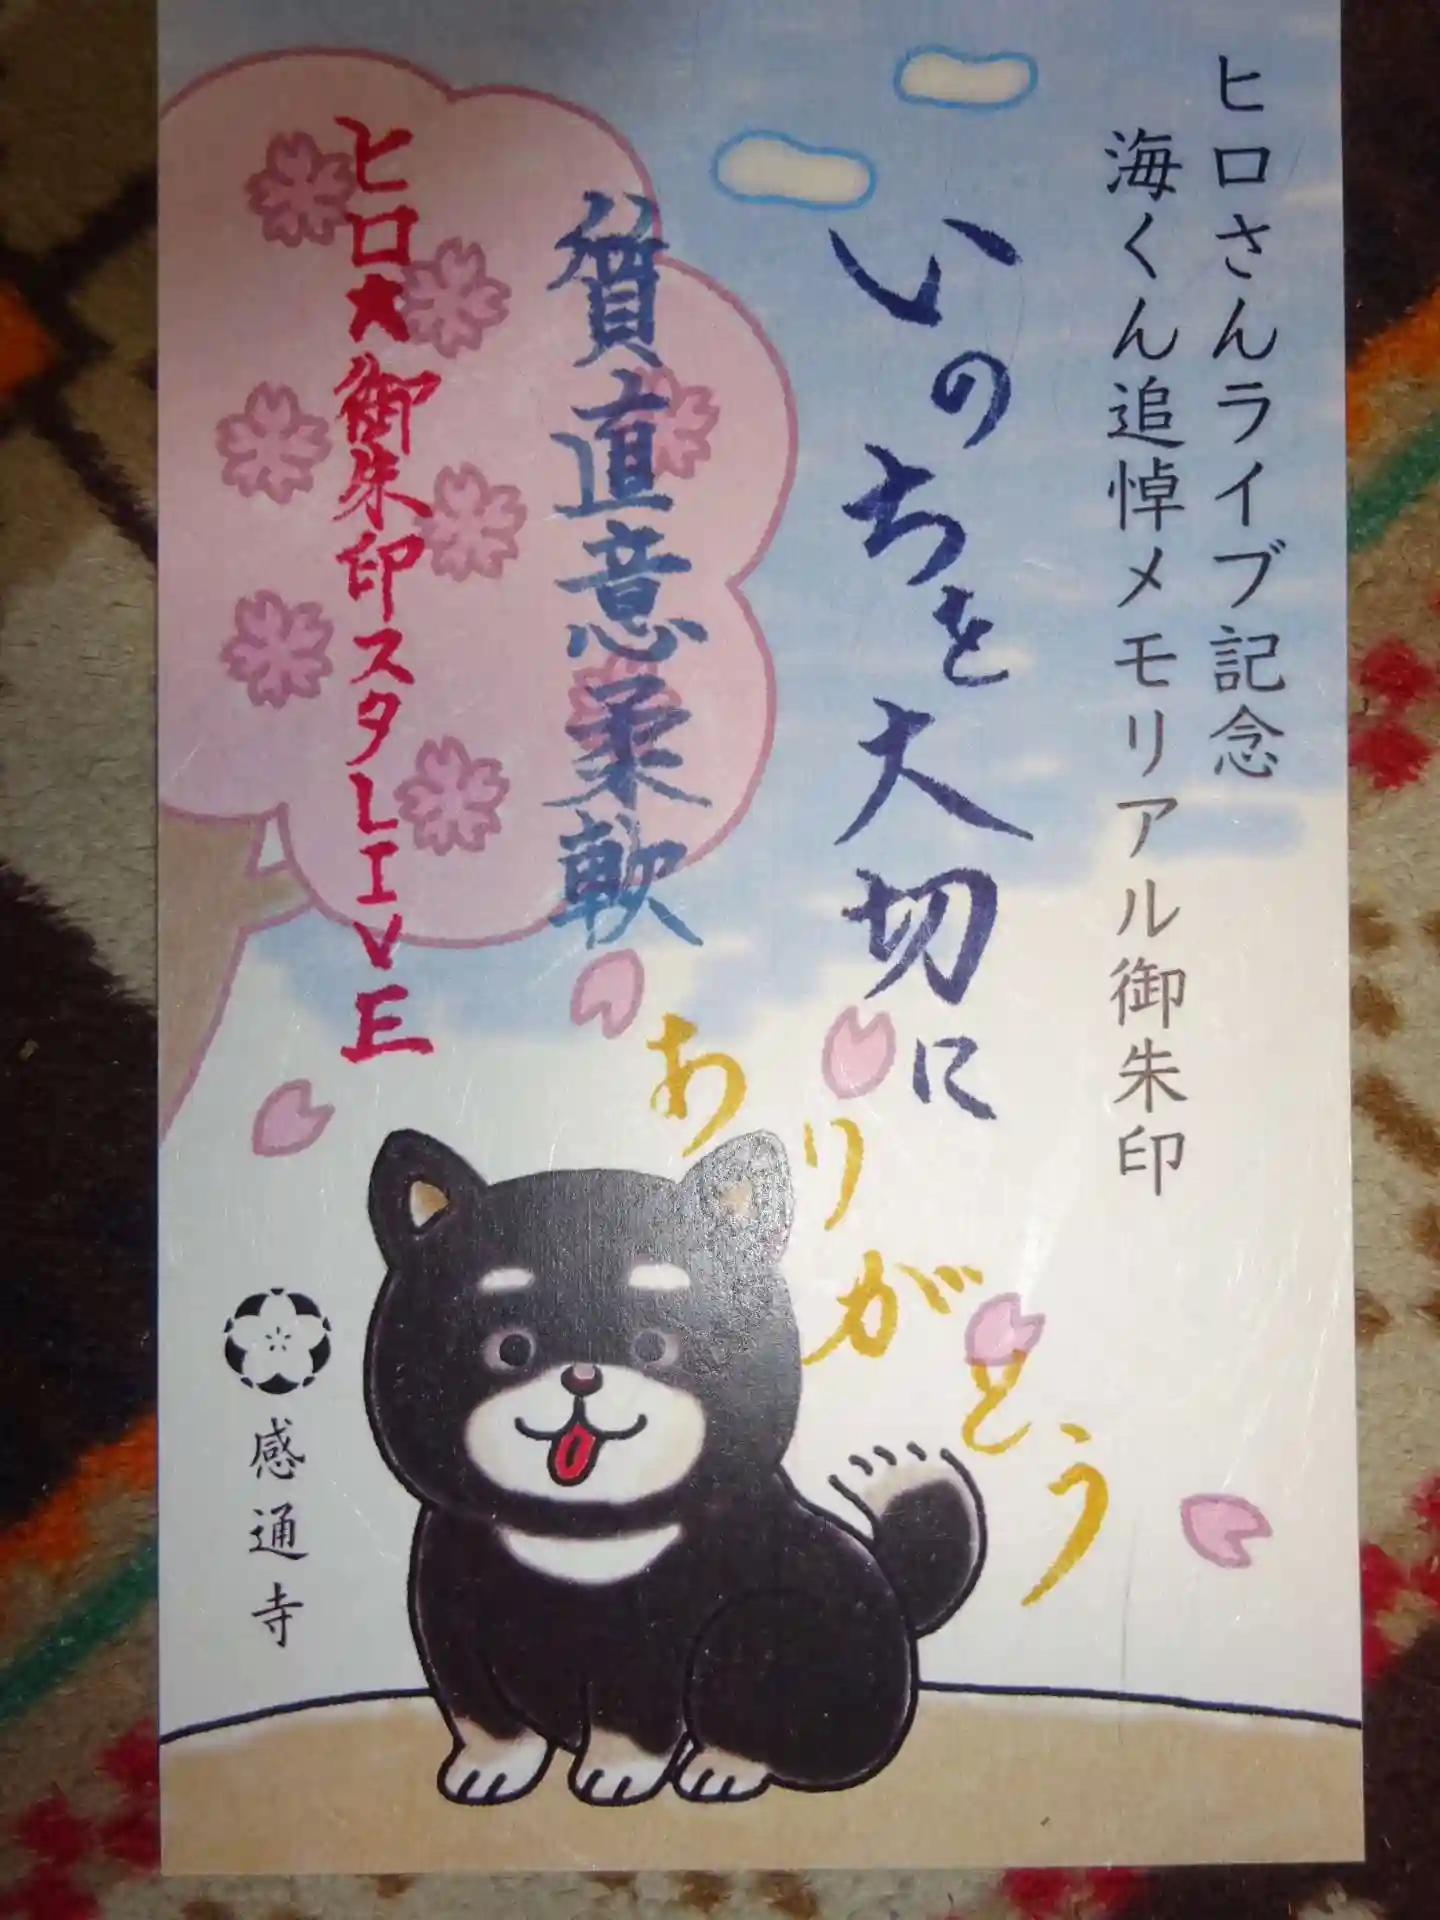 ヒロさんライブ記念
海くん追悼メモリアル御朱印
いのちを大切に
質直意柔軟
ヒロ★御朱印スタLIVE
ありがとう
感通寺